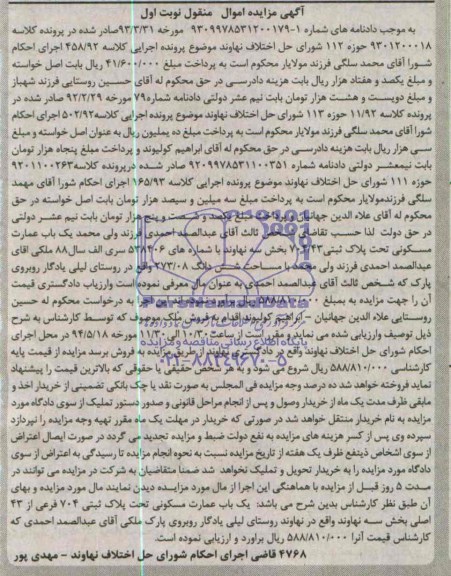 آگهی مزایده اموال منقول نوبت اول
به موجب دادنامه های شماره ۱-۹۳۰۹۹۷۸۵۳۱۲۰۰۱۷۹ مورخه ۹۳/۳/۳۱صادر شده در پرونده کلاسه
۹۳۰۱۲۰۰۰۱۸ حوزه ۱۱۲ شورای حل اختلاف نهاوند موضوع پرونده اجرایی کلاسه ۴۵۸/۹۲ اجرای احکام
شورا آقای محمد سلگی فرزند مولایار محکوم است به پرداخت مبلغ ۴۱/۶۰۰/۰۰۰ ریال بابت اصل خواسته
و مبلغ یکصد و هفتاد هزار ریال بابت هزینه دادرسی در حق محکوم له آقای حسین روستایی فرزند شهباز
و مبلغ دویست و هشت هزار تومان بابت نیم عشر دولتی دادنامه شماره۷۹ مورخه ۹۲/۲/۲۹ صادر شده در
پرونده کلاسه ۱۱/۹۲ حوزه ۱۱۳ شورای حل اختلاف نهاوند موضوع پرونده اجرایی کلاسه۵۰۲/۹۲ اجرای احکام
شورا آقای محمد سلگی فرزند مولایار محکوم است به پرداخت مبلغ ده میلیون ریال به عنوان اصل خواسته و مبلغ
سی هزار ریال بابت هزینه دادرسی در حق محکوم له آقای ابراهیم کولیوند و پرداخت مبلغ پنجاه هزار تومان
بابت نیمعشر دولتی دادنامه شماره ۹۲۰۹۹۷۸۵۳۱۱۰۰۳۵۱ صادر شده درپرونده کلاسه۹۲۰۱۱۰۰۲۶۳
حوزه ۱۱۱ شورای حل اختلاف نهاوند موضوع پرونده اجرایی کلاسه ۱۶۵/۹۳ اجرای احکام شورا آقای مهمد
سلگی فرزندمولایار محکوم است به پرداخت مبلغ سه میلین و سیصد هزار تومان بابت اصل خواسته در حق
محکوم له آقای علاء الدین جهانیان و پرداخت مبلغ یکصد و شصت و پنج هزار تومان بابت نیم عشر دولتی
در حق دولت لذا حسب تقاضای شخص ثالث آقای عبدالصمد احمدی فرزند ولی محمد یک باب عمارت
مسکونی تحت پلاک ثبتی۷۰۴/۴۳ بخش سه نهاوند با شماره های ۵۳۸۴۰۶ سری الف سال۸۸ ملکی آقای
عبدالصمد احمدی فرزند ولی محمد با مساحت شش دانگ ۲۷۳/۰۸ واقع در روستای لیلی یادگار روبروی
پارک که شخص ثالث آقای عبدالصمد احمدی به عنوان مال معرفی نموده است وارزیاب دادگستری قیمت
آن را جهت مزایده به بمبلغ ۵۸۸/۸۱۰/۰۰۰ ریال برآورد نموده اند این اجرا به درخواست محکوم له حسین
روستایی علاء الدین جهانیان – ابراهیم کولیوند اقدام به فروش ملک موصوف که توسط کارشناس به شرح
ذیل توصیف وارزیابی شده می نماید و مقرر است از ساعت۱۰/۳۰ الی ۱۱/۳۰ مورخه ۹۴/۵/۱۸ در محل اجرای
احکام شورای حل اختلاف نهاوند واقع در دادگستری نهاوند از طریق مزایده به فروش برسد مزایده از قیمت پایه
کارشناسی ۵۸۸/۸۱۰/۰۰۰ ریال شروع می شود و به هر شخص حقیقی یا حقوقی که بالاترین قیمت را پیشنهاد
نماید فروخته خواهد شد ده درصد وجه مزایده فی المجلس به صورت نقد یا چک بانکی تضمینی از خریدار اخذ و
مابقی ظرف مدت یک ماه از خریدار وصول و پس از انجام مراحل قانونی و صدور دستور تملیک از سوی دادگاه مورد
مزایده به نام خریدار منتقل خواهد شد در صورتی که خریدار در مهلت یک ماه مقرر تهیه وجه مزایده را نپردازد
سپرده وی پس از کسر هزینه های مزایده به نفع دولت ضبط و مزایده تجدید می گردد در صورت ایصال اعتراض
از سوی اشخاص ذینفع ظرف یک هفته از تاریخ مزایده نسبت به نحوه انجام مزایده تا رسیدگی به اعتراض از سوی
دادگاه مورد مزایده را به خریدار تحویل و تملیک نخواهد شد ضمنا متقاضیان به شرکت در مزایده می توانند در
مدت ۵ روز قبل از مزایده با هماهنگی این اجرا از مال مورد مزایده دیدن نمایند مال مورد مزایده و بهای
آن طبق نظر کارشناس بدین شرح می باشد: یک باب عمارت مسکونی تحت پلاک ثبتی ۷۰۴ فرعی از ۴۳
اصلی بخش سه نهاوند واقع در نهاوند روستای لیلی یادگار روبروی پارک ملکی آقای عبدالصمد احمدی که
کارشناس قیمت آنرا ۵۸۸/۸۱۰/۰۰۰ ریال براورد و ارزیابی نموده است.
۴۷۶۸ قاضی اجرای احکام شورای حل اختلاف نهاوند – مهدی پور
پایگاه اطلاع رسانی مناقصه و مزایده
۰۲۱-۸۸۳۴۹۶۷۰-۵